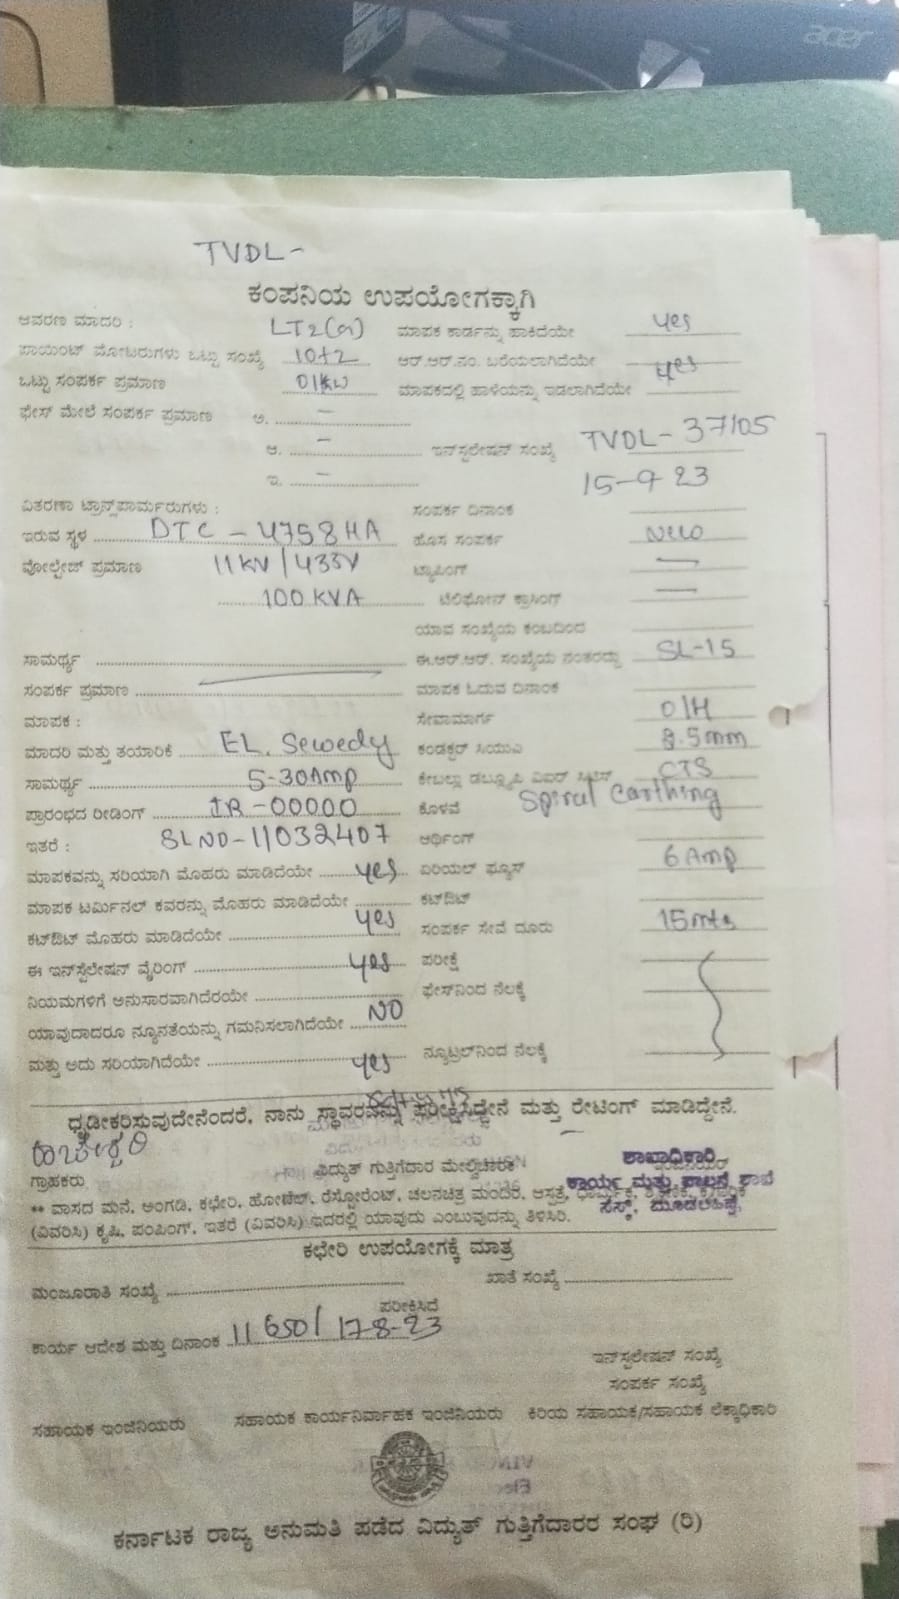 acer
TVDL-
ಕಂಪನಿಯ ಉಪಯೋಗಕ್ಕಾಗಿ
ಆವರಣ ಮಾದರಿ : LT2(a) ಮಾಪಕ ಕಾರ್ಡನ್ನು ಹಾಕಿದೆಯೇ yes
ಪಾಯಿಂಟ್ ಮೋಟರುಗಳು ಒಟ್ಟು ಸಂಖ್ಯೆ 10+2 ಆರ್.ಆರ್.ನಂ. ಬರೆಯಲಾಗಿದೆಯೇ
ಒಟ್ಟು ಸಂಪರ್ಕ ಪ್ರಮಾಣ 01KW ಮಾಪಕದಲ್ಲಿ ಹಾಳೆಯನ್ನು ಇಡಲಾಗಿದೆಯೇ yes
ಫೇಸ್ ಮೇಲೆ ಸಂಪರ್ಕ ಪ್ರಮಾಣ ಅ. –
ಆ. – ಇನ್‌ಸ್ಟಲೇಷನ್ ಸಂಖ್ಯೆ TVDL-37105
ಇ. – 15-9-23
ವಿತರಣಾ ಟ್ರಾನ್ಸ್‌ಫಾರ್ಮರುಗಳು : ಸಂಪರ್ಕ ದಿನಾಂಕ
ಇರುವ ಸ್ಥಳ DTC - 4758HA ಹೊಸ ಸಂಪರ್ಕ New
ವೋಲ್ಟೇಜ್ ಪ್ರಮಾಣ 11KV/433V ಟ್ಯಾಪಿಂಗ್ —
100 KVA ಟೆಲಿಫೋನ್ ಕ್ರಾಸಿಂಗ್ —
ಯಾವ ಸಂಖ್ಯೆಯ ಕಂಬದಿಂದ
ಸಾಮರ್ಥ್ಯ ಈ.ಆರ್.ಆರ್. ಸಂಖ್ಯೆಯ ನಂತರದ್ದು SL-15
ಸಂಪರ್ಕ ಪ್ರಮಾಣ ಮಾಪಕ ಓದುವ ದಿನಾಂಕ
ಮಾಪಕ : ಸೇವಾಮಾರ್ಗ O/H
ಮಾದರಿ ಮತ್ತು ತಯಾರಿಕೆ EL. Sewedy ಕಂಡಕ್ಟರ್ ಸಿಯುಎ 2.5mm
ಸಾಮರ್ಥ್ಯ 5-30Amp ಕೇಬಲ್ಲು ಡಬ್ಲ್ಯೂಪಿ ವಿಐರ್ CTS
ಪ್ರಾರಂಭದ ರೀಡಿಂಗ್ IR-00000 ಕೊಳವೆ Spiral Earthing
ಇತರೆ : SLNO-11032407 ಆರ್ಥಿಂಗ್
ಮಾಪಕವನ್ನು ಸರಿಯಾಗಿ ಮೊಹರು ಮಾಡಿದೆಯೇ yes ಏರಿಯಲ್ ಫ್ಯೂಸ್ 6Amp
ಮಾಪಕ ಟರ್ಮಿನಲ್ ಕವರನ್ನು ಮೊಹರು ಮಾಡಿದೆಯೇ ಕಟ್‌ಔಟ್
ಕಟ್‌ಔಟ್ ಮೊಹರು ಮಾಡಿದೆಯೇ yes ಸಂಪರ್ಕ ಸೇವೆ ದೂರು 15mts
ಈ ಇನ್‌ಸ್ಟೆಲೇಷನ್ ವೈರಿಂಗ್ yes ಪರೀಕ್ಷೆ
ನಿಯಮಗಳಿಗೆ ಅನುಸಾರವಾಗಿದೆರಯೇ ಫೇಸ್‌ನಿಂದ ನೆಲಕ್ಕೆ
ಯಾವುದಾದರೂ ನ್ಯೂನತೆಯನ್ನು ಗಮನಿಸಲಾಗಿದೆಯೇ NO
ಮತ್ತು ಅದು ಸರಿಯಾಗಿದೆಯೇ yes ನ್ಯೂಟ್ರಲ್‌ನಿಂದ ನೆಲಕ್ಕೆ
ಧೃಡೀಕರಿಸುವುದೇನೆಂದರೆ, ನಾನು ಸ್ಥಾವರವನ್ನು ಪರೀಕ್ಷಿಸಿದ್ದೇನೆ ಮತ್ತು ರೇಟಿಂಗ್ ಮಾಡಿದ್ದೇನೆ.
ಗ್ರಾಹಕರು ವಿದ್ಯುತ್ ಗುತ್ತಿಗೆದಾರ ಮೇಲ್ವಿಚಾರಕ ಶಾಖಾಧಿಕಾರಿ
ಕಾರ್ಯ ಮತ್ತು ಪಾಲನೆ ಶಾಖೆ
** ವಾಸದ ಮನೆ, ಅಂಗಡಿ, ಕಛೇರಿ, ಹೋಟೆಲ್, ರೆಸ್ಟೋರೆಂಟ್, ಚಲನಚಿತ್ರ ಮಂದಿರ, ಆಸ್ಪತ್ರೆ,
(ವಿವರಿಸಿ) ಕೃಷಿ, ಪಂಪಿಂಗ್, ಇತರೆ (ವಿವರಿಸಿ) ಇದರಲ್ಲಿ ಯಾವುದು ಎಂಬುವುದನ್ನು ತಿಳಿಸಿರಿ.
ಕಛೇರಿ ಉಪಯೋಗಕ್ಕೆ ಮಾತ್ರ
ಮಂಜೂರಾತಿ ಸಂಖ್ಯೆ ಖಾತೆ ಸಂಖ್ಯೆ
ಪರೀಕ್ಷಿಸಿದೆ
ಕಾರ್ಯ ಆದೇಶ ಮತ್ತು ದಿನಾಂಕ 11650/17-8-23
ಇನ್‌ಸ್ಟಲೇಷನ್ ಸಂಖ್ಯೆ
ಸಂಪರ್ಕ ಸಂಖ್ಯೆ
ಸಹಾಯಕ ಇಂಜಿನಿಯರು ಸಹಾಯಕ ಕಾರ್ಯನಿರ್ವಾಹಕ ಇಂಜಿನಿಯರು ಕಿರಿಯ ಸಹಾಯಕ/ಸಹಾಯಕ ಲೆಕ್ಕಾಧಿಕಾರಿ
ಕರ್ನಾಟಕ ರಾಜ್ಯ ಅನುಮತಿ ಪಡೆದ ವಿದ್ಯುತ್ ಗುತ್ತಿಗೆದಾರರ ಸಂಘ (ರಿ)